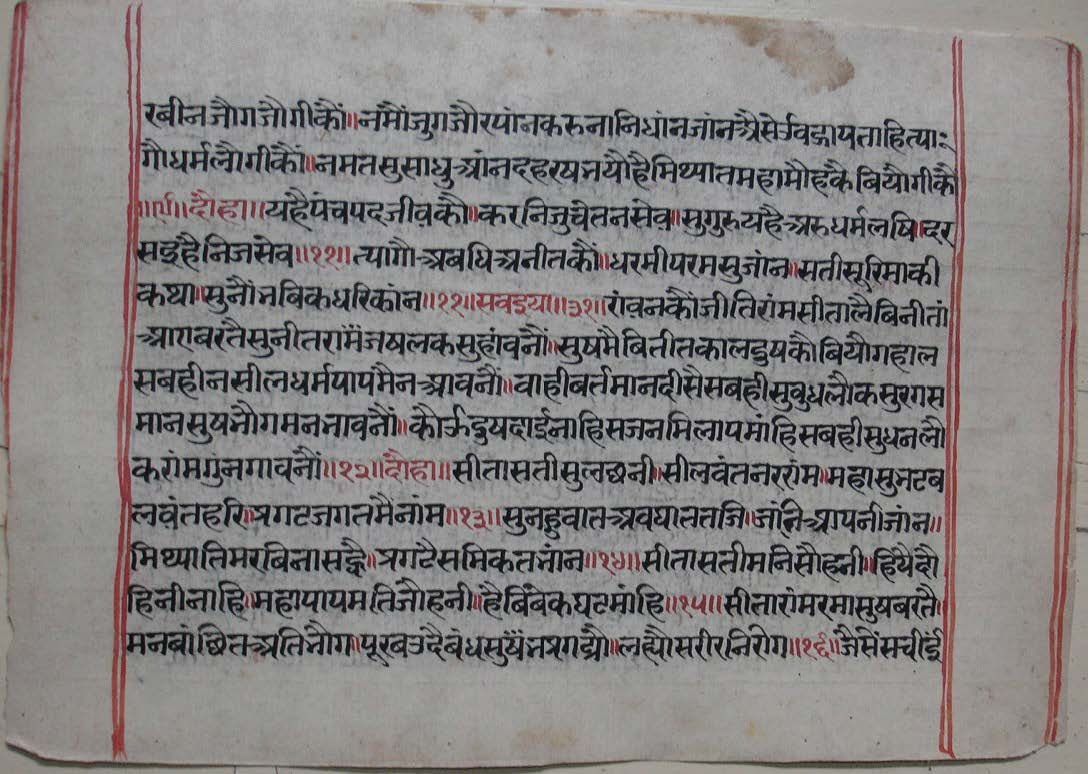 रबीनजौगजौगीकौं॥नमौंजुगजौरपांनकरुनानिधांनजांनअैसेउवझायताहित्या
गौधर्मलौगीकौं॥नमतसुसाधुआंनदहरषभयौहैमिथ्यातमहामौहकैबियौगीकौ
॥दौहा॥यहैपंचपदजीवकौ॥करनिजुचेतनसेव॥सुगुरुयहैअरुधर्मलषि॥दर
सइहैनिजसेव॥११॥त्यागौअबषिअनीतकौं॥धरमीपरमसुजांन॥सतीसूरिमाकी
कथा॥सुनौंभबिकधरिकांन॥११॥सवइया॥३१॥रांवनकौंजीतिरांमसीतालैबिनीतां
आएबरतैसुनीतराभैंजषलकसुहांवनौं॥सुषमैबितीतकालदुषकौबियौगहाल
सबहीनसीलधर्मपापमैनआवनौं॥वाहीबर्तमानदीसैसबहीसुबुधलौकसुरगस
मानसुषभौगमनभावनौं॥कौऊदुषदाईनाहिसजनमिलापमांहिसबहीसुधनलौ
करांमगुंनगावनौं॥१२॥दौहा॥सीतासतीसुलछनी॥सीलवंतनररांम॥महासुभटब
लवंतहरि॥प्रगटजगतमैंनांम॥१३॥सुनहुबातअवघालतजि॥जांनिआपनीजांन॥
मिथ्यातिमरबिनासह्वै॥प्रगटैसमिकतभांन॥१४॥सीतासतीमनिसौहनी॥हियैदौ
हिनीनाहि॥महापापमतिजौहनी॥हैबिंबेकघटमांहि॥१५॥सीतारांमरमासुषबरतै
मनबांछितअतिभौग॥पूरबउदैबंधसुभैंप्रगट्यौ॥लह्यौसरीरनिरोग॥१६॥जैसेंसचीइं